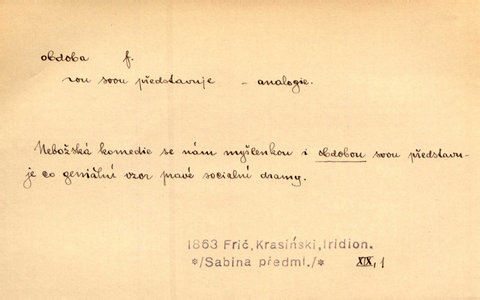 obdoba f.
‑zou svou představuje – analogie.
Nebožská komedie se nám myšlenkou i obdobou svou představu-
je co geniální vzor pravé socialní dramy.
1863 Frič, Krasiński, Iridion.
*/Sabina předml./* XIX, 1